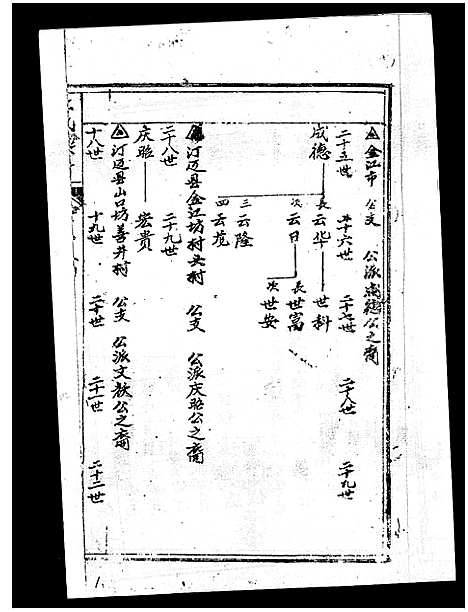 金江市 公支 公派成德公之裔
二十五世 二十六世 二十七世 二十八世 二十九世
成德 長云华 世科
次云日 長世富
次世安
三云隆
四云苑
汀迈县金江坊村头村 公支 公派庆昭公之裔
二十八世 二十九世
庆昭 宏贵
汀迈县山口坊善井村 公支 公派文教公之裔
十八世 十九世 二十世 二十一世 二十二世